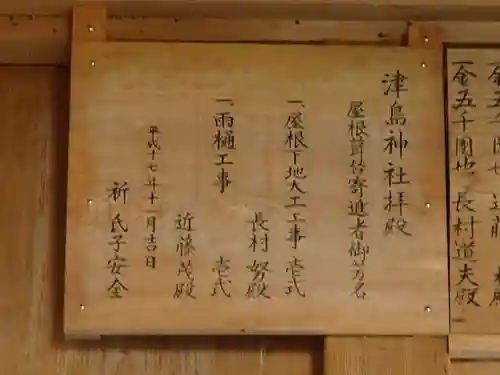 津島神社拝殿
屋根葺替寄進者御芳名
一、屋根下地大工工事 壱式
長村 努殿
一、雨樋工事 壱式
近藤茂殿
平成十七年十一月吉日
祈 氏子安全
金五千圓也 長村道夫殿